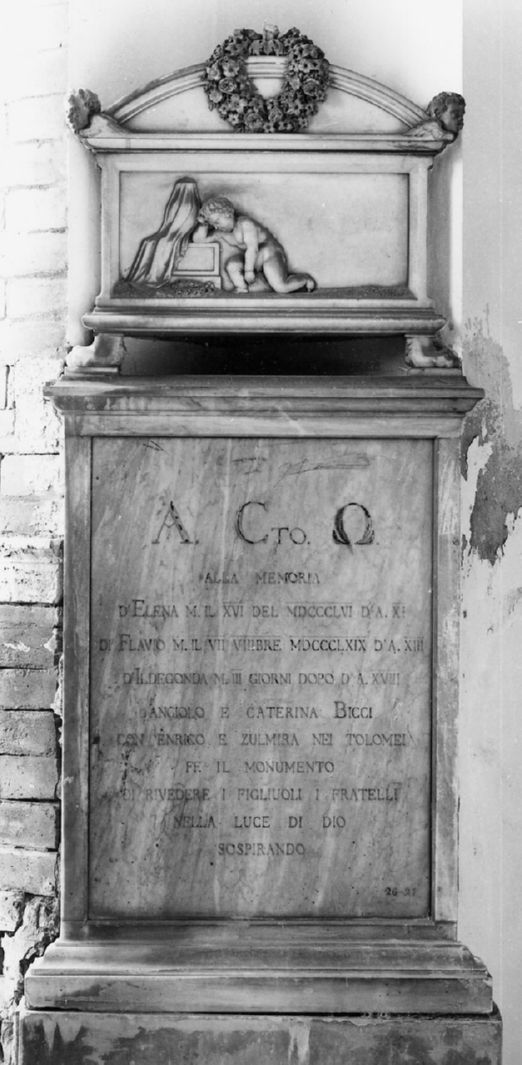 A. CTO. Ω
ALLA MEMORIA
D'ELENA M. IL XVI DEL MDCCCLVI D'A. XI
DI FLAVIO M. IL VII VIIIBRE MDCCCLXIX D'A. XIII
D'ILDEGONDA M. III GIORNI DOPO D'A. XVIII
D'ANGIOLO E CATERINA BICCI
CON ENRICO E ZULMIRA NEI TOLOMEI
FE IL MONUMENTO
DI RIVEDERE I FIGLIUOLI I FRATELLI
NELLA LUCE DI DIO
SOSPIRANDO
26-27